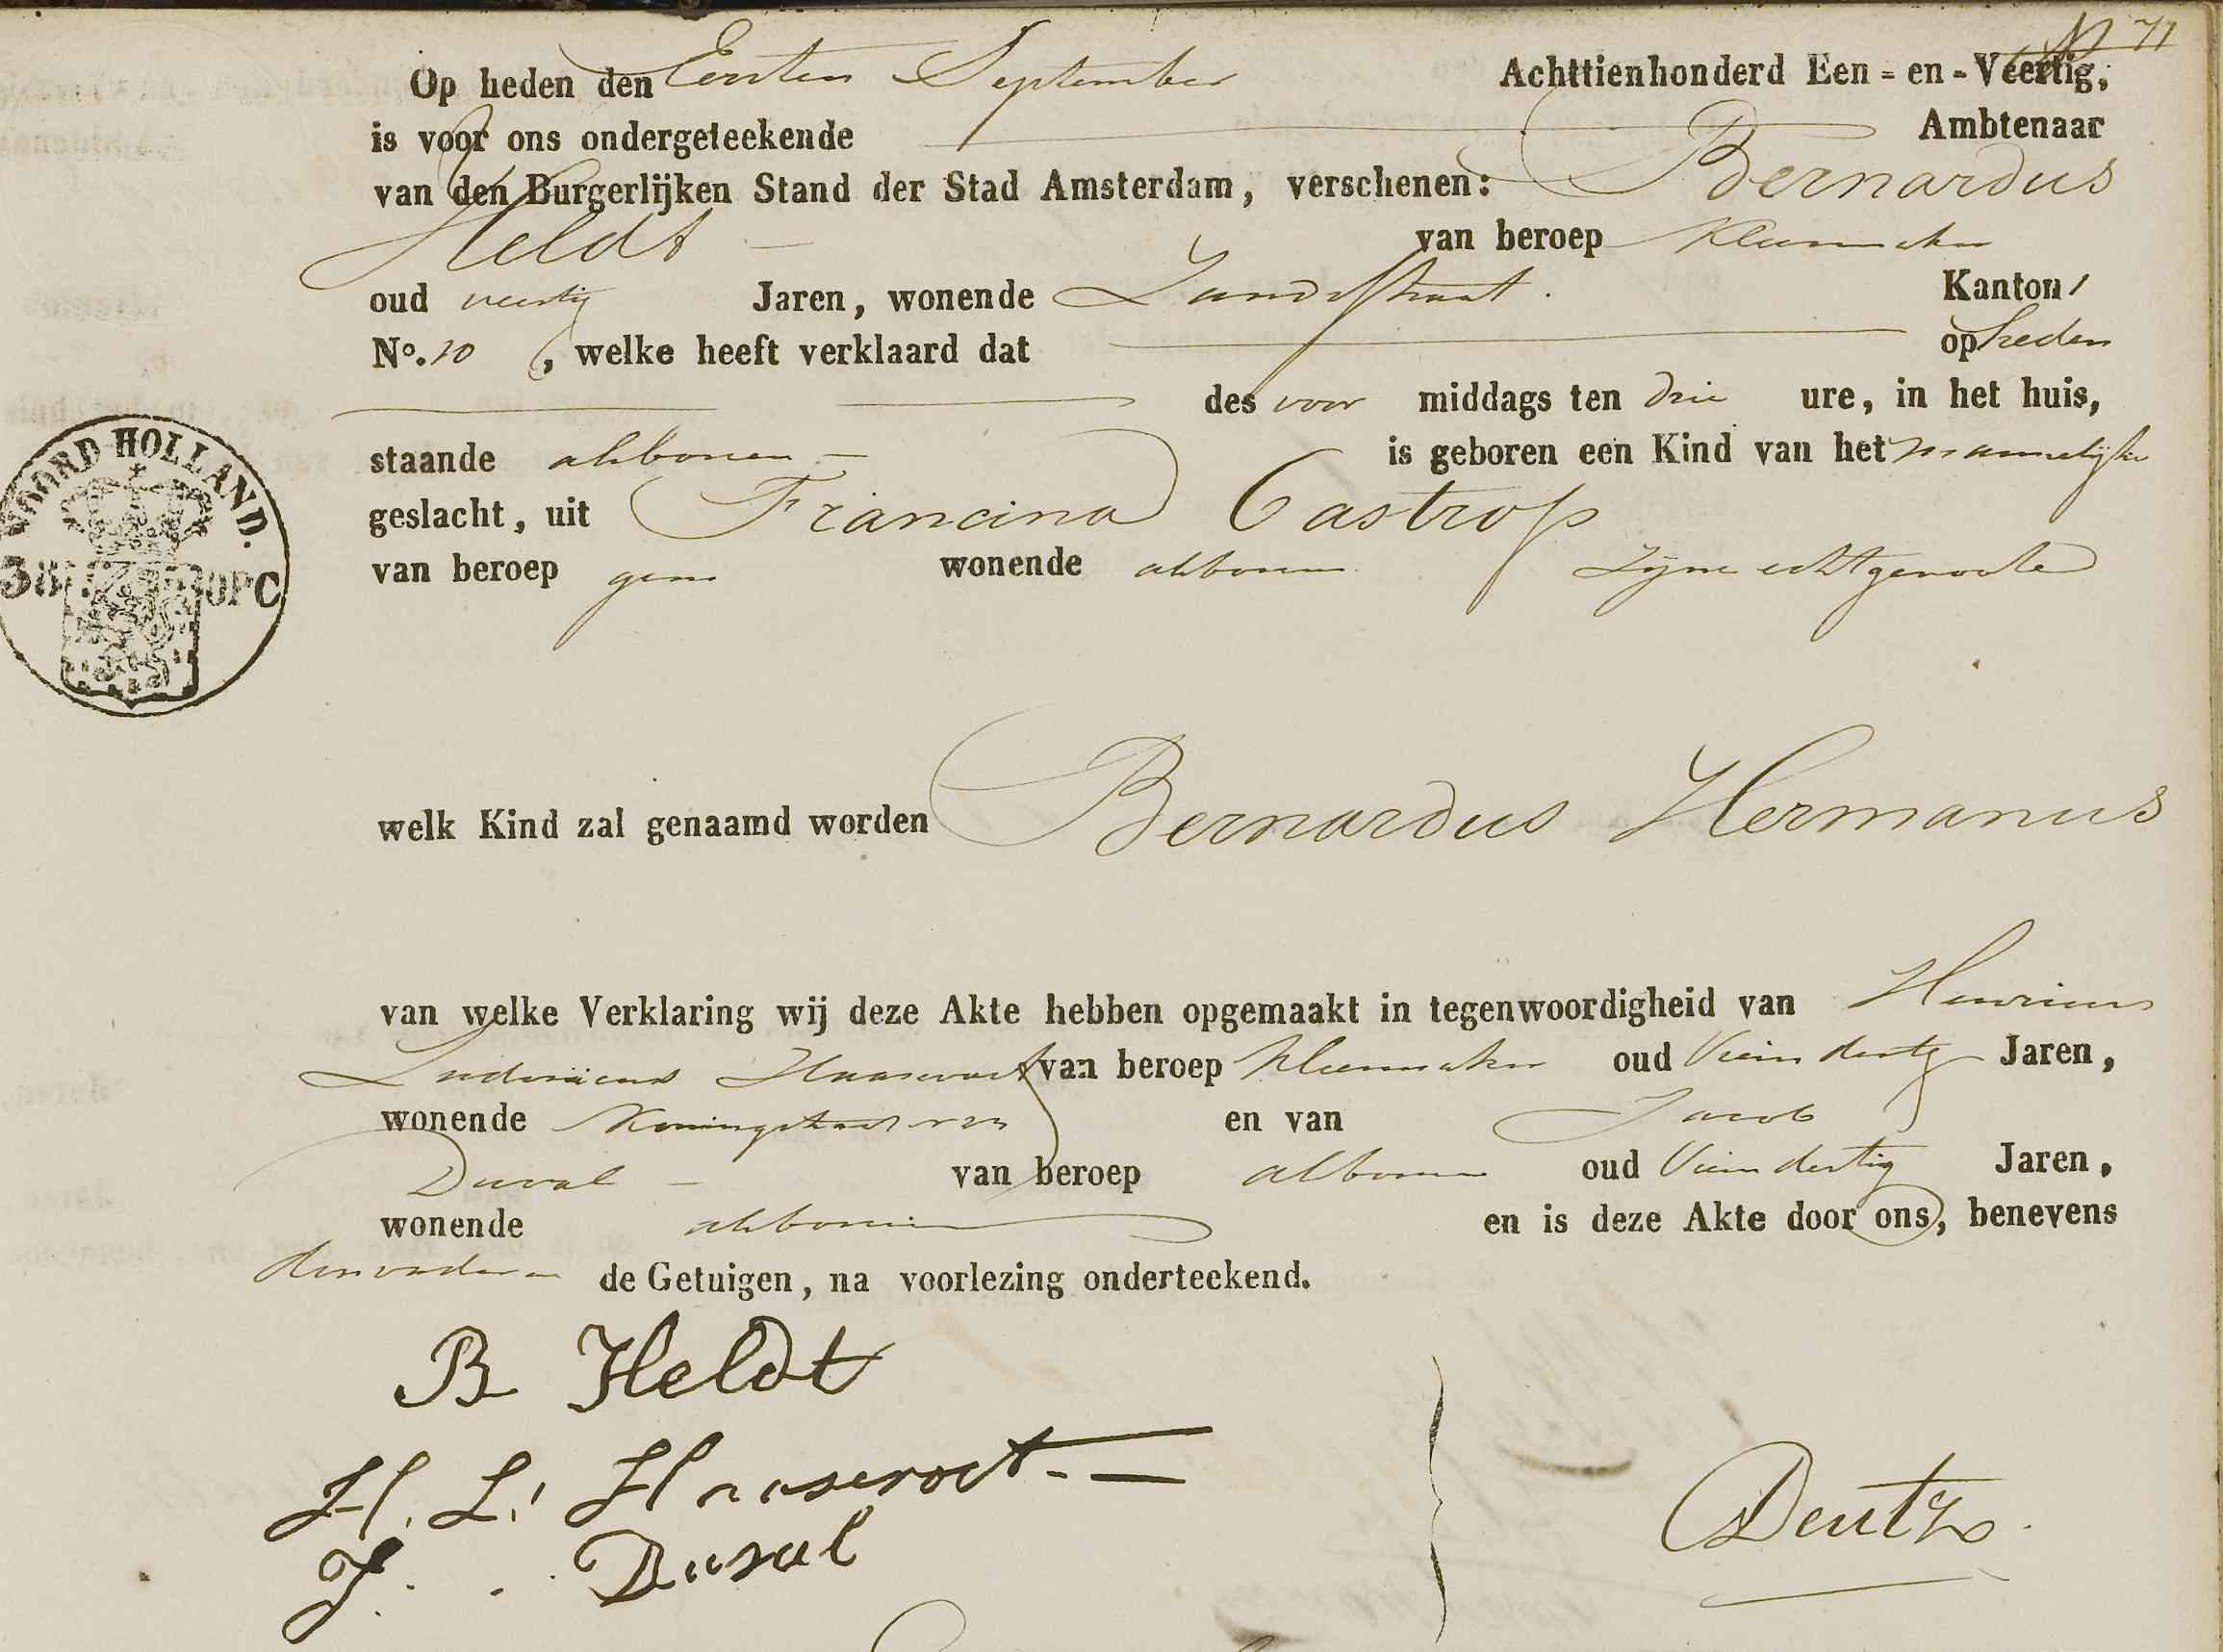 N 71
Op heden den Eersten September Achttienhonderd Een-en-Veertig,
is voor ons ondergeteekende Ambtenaar
van den Burgerlijken Stand der Stad Amsterdam, verschenen: Bernardus
Heldt van beroep Kleermaker
oud veertig Jaren, wonende Zandstraat Kanton 1
No. 10, welke heeft verklaard dat op heden
des voor middags ten drie ure, in het huis,
staande alsboven is geboren een Kind van het mannelijke
geslacht, uit Francina Castrop
van beroep geen wonende alsboven zijne echtgenoote
NOORD HOLLAND.
38 OPC
welk Kind zal genaamd worden Bernardus Hermanus
van welke Verklaring wij deze Akte hebben opgemaakt in tegenwoordigheid van Henricus
Ludovicus Haaseroot van beroep kleermaker oud Vierendertig Jaren,
wonende Koningstraat en van Jacob
Duval van beroep alsboven oud Vierendertig Jaren,
wonende alsboven en is deze Akte door ons, benevens
den vader en de Getuigen, na voorlezing onderteekend.
B Heldt
H. L. Haaseroot
J. Duval
Deutz